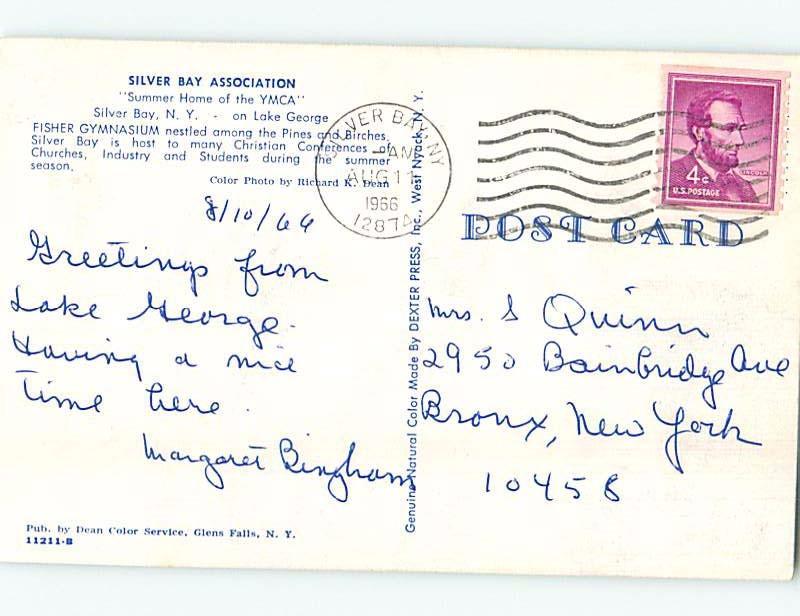 SILVER BAY ASSOCIATION
"Summer Home of the YMCA"
Silver Bay, N. Y. - on Lake George
FISHER GYMNASIUM nestled among the Pines and Birches.
Silver Bay is host to many Christian Conferences of
Churches, Industry and Students during the summer
season.
Color Photo by Richard K. Dean
8/10/66
Greetings from
Lake George.
Having a nice
time here.
Margaret Bingham
Pub. by Dean Color Service, Glens Falls, N. Y.
11211-B
Genuine Natural Color Made By DEXTER PRESS, Inc., West Nyack, N. Y.
SILVER BAY, NY
AM
AUG 11
1966
12874
LINCOLN
4¢
U.S. POSTAGE
POST CARD
Mrs. S Quinn
2950 Bainbridge Ave
Bronx, New York
10458